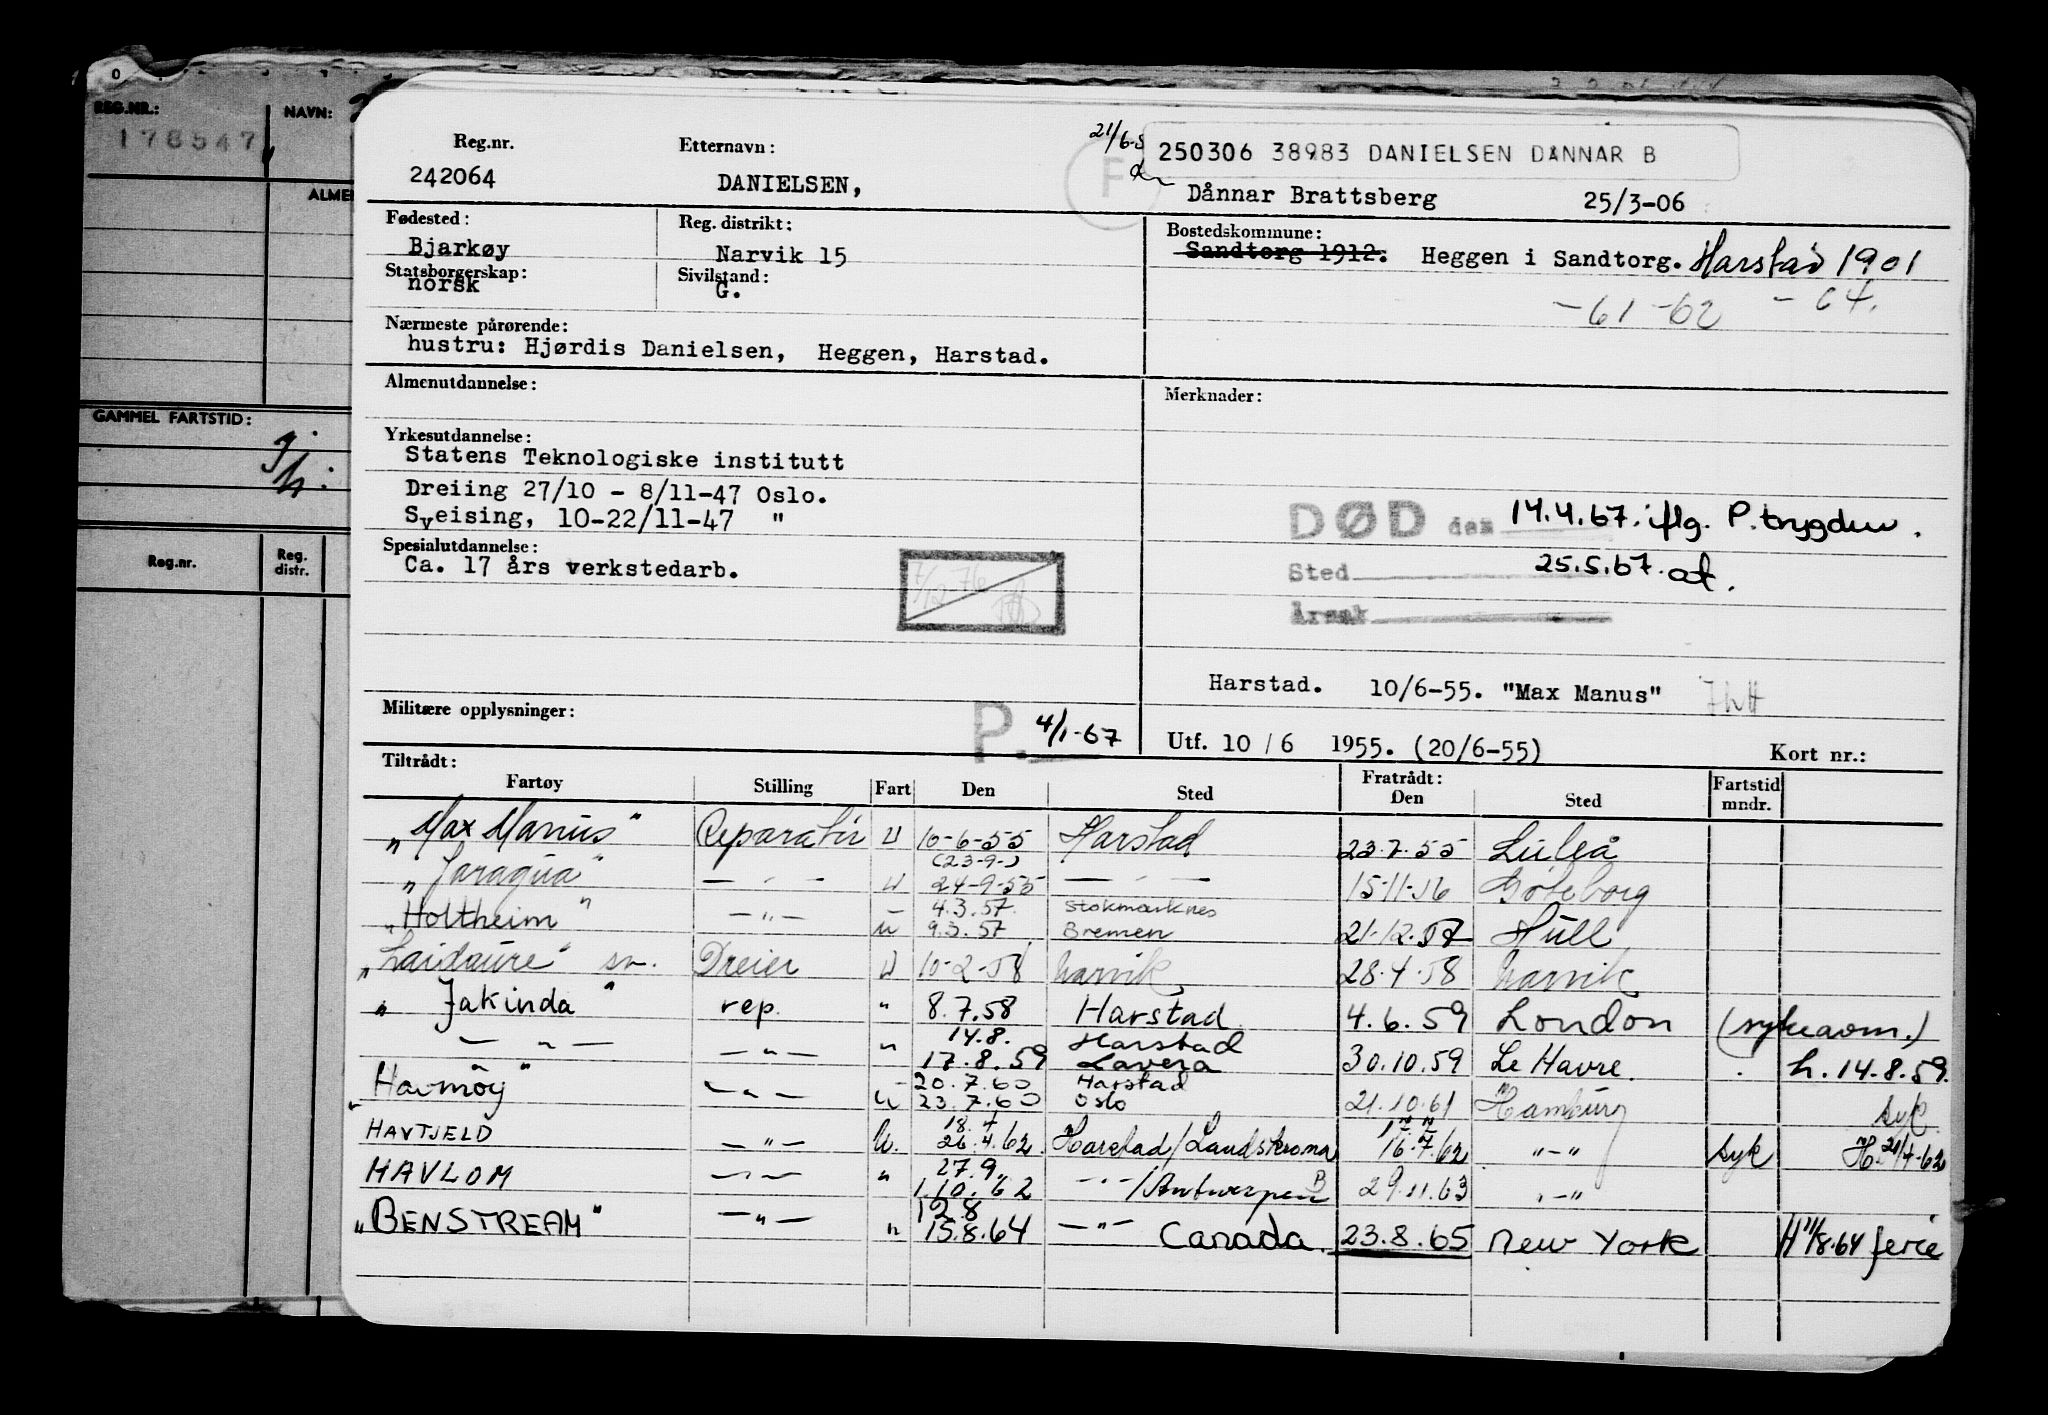 REG.NR.:
NAVN:
178547
ALMEN
GAMMEL FARTSTID:
Reg.nr.
Reg. distr.
Reg.nr.
Etternavn:
250306 38983 DANIELSEN DANNAR B
242064
DANIELSEN,
F
Dånnar Brattsberg 25/3-06
Fødested:
Reg. distrikt:
Bostedskommune:
Bjarkøy
Narvik 15
Sandtorg 1912. Heggen i Sandtorg. Harstad 1901
Statsborgerskap:
Sivilstand:
norsk
G.
-61 -62 -64.
Nærmeste pårørende:
hustru: Hjørdis Danielsen, Heggen, Harstad.
Almenutdannelse:
Merknader:
Yrkesutdannelse:
Statens Teknologiske institutt
Dreiing 27/10 - 8/11-47 Oslo.
Sveising, 10-22/11-47 "
DØD den 14.4.67. iflg. P.trygden.
Spesialutdannelse:
Ca. 17 års verkstedarb.
Sted 25.5.67. at.
Årsak
Harstad. 10/6-55. "Max Manus"
Militære opplysninger:
P. 4/1-67
Utf. 10/6 1955. (20/6-55)
Kort nr.:
Tiltrådt:
Fratrådt:
Fartøy Stilling Fart Den Sted Den Sted Fartstid mndr.
"Max Manus" Reparatør U 10-6-55 Harstad 23.7.55 Luleå
(23-9-)
"Jaragua" — " — U 24-9-55 — " — 15-11-56 Göteborg
4.3.57. Stokmarknes
"Holtheim" — " — u 9.3.57 Bremen 21.12.57 Hull
"Laidaure" sv. Dreier U 10-2-58 Narvik 28.4.58 Narvik
" Jakinda " rep. " 8.7.58 Harstad 4.6.59 London (sykeavm.)
14.8. Harstad
— " — — " — " 17.8.59 Lavera 30.10.59 Le Havre. h. 14.8.59.
20.7.60 Harstad
"Havmøy" — " — u 23.7.60 Oslo 21.10.61 Hamburg syk.
18.4
HAVTJELD — " — U. 26.4.62. Harstad/Landskrona 16.7.62 " — " syk H. 21/4-62
27.9.
HAVLOM — " — " 1.10.62 — " — /Antwerpen 29.11.63 " — "
12.8
"BENSTREAM" — " — " 15.8.64 — " — Canada. 23.8.65 New York H 11/8.64 ferie